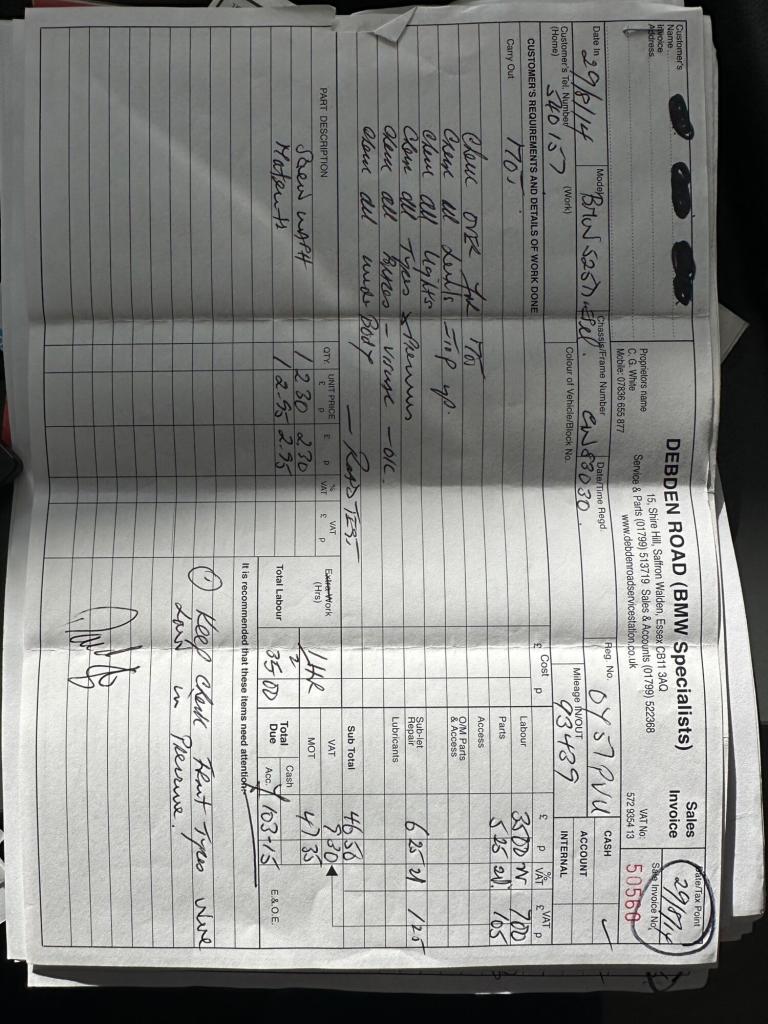 DEBDEN ROAD (BMW Specialists)
15, Shire Hill, Saffron Walden, Essex CB11 3AQ
Service & Parts (01799) 513719 Sales & Accounts (01799) 522368
www.debdenroadservicestation.co.uk
Customer's
Name
Invoice
Address
Proprietors name
C. G. White
Mobile: 07836 655 877
Sales
Invoice
VAT No:
572 9354 13
Date/Tax Point
29/8/14
Sale Invoice No.
50560
Date In 29/8/14
Model BMW 525D
Chassis/Frame Number CW83030
Date/Time Regd.
Reg. No. OY57PVU
CASH ✓
Customer's Tel. Number
(Home) 540157
(Work)
Colour of Vehicle/Block No.
Mileage IN/OUT
93439
ACCOUNT
INTERNAL
CUSTOMER'S REQUIREMENTS AND DETAILS OF WORK DONE
Cost
£ p
£ p % VAT £ VAT p
Carry Out MOT
Labour 35 00 20 7 00
Parts 5 25 20 1 05
Access
O/M Parts
& Access
Sub-let
Repair 6 25 20 1 25
Lubricants
Check over for MOT
Check all Levels – Top up.
Check all Lights
Check all Tyres &
Check all Brakes – – O/K.
Check all under Body
– Road Test
Sub Total 46 50
VAT 9 30
MOT 47 35
Total Due
Cash
Acc. 103–15
E.&O.E.
PART DESCRIPTION
QTY. UNIT PRICE £ p £ p % VAT £ VAT p
Screen wash 1 2 30 2 30
1 2.95 2.95
Extra Work
(Hrs) 1 Hr
Total Labour 35 00
It is recommended that these items need attention:
① Keep check Front Tyres were
Low in Pressure.